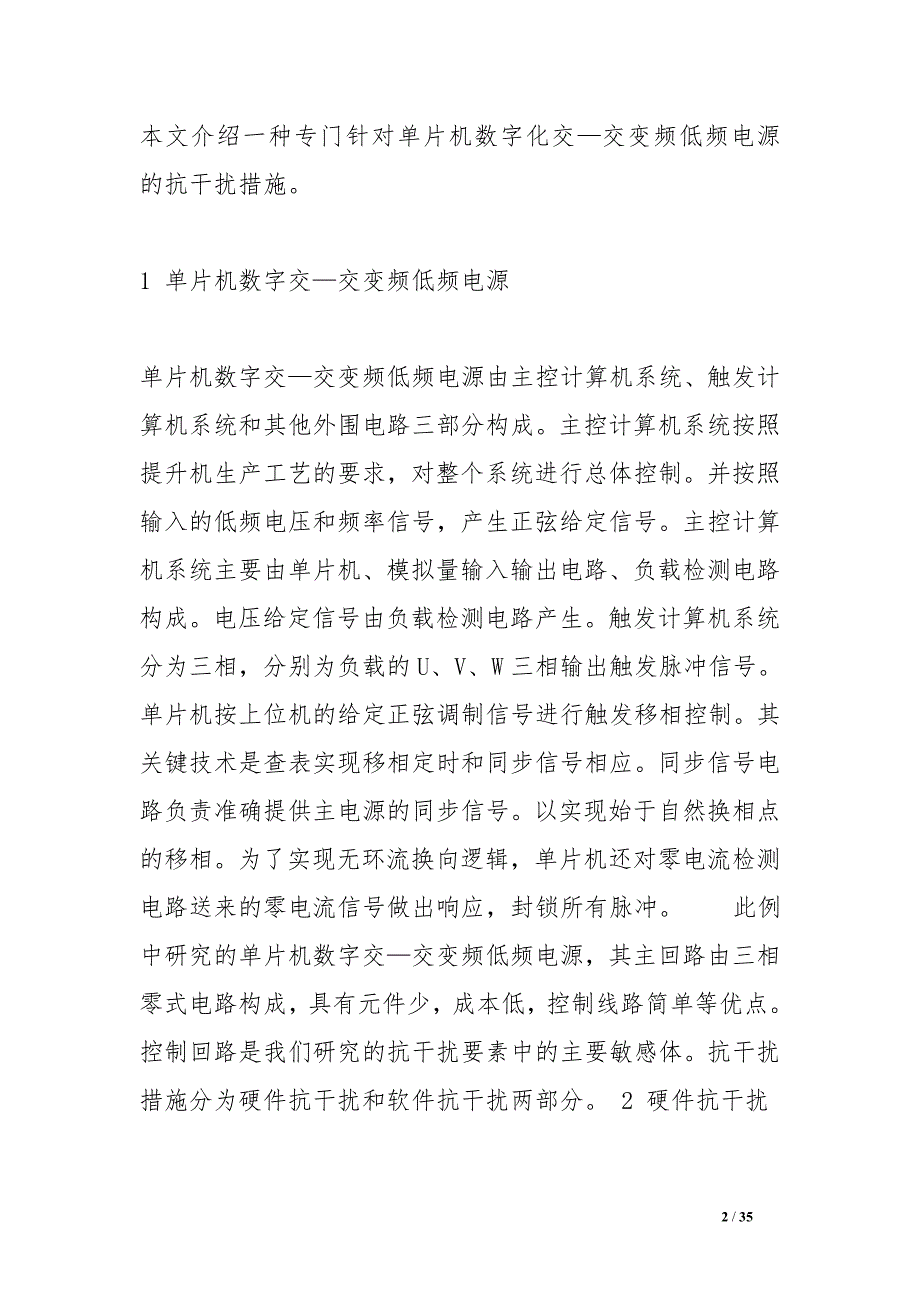 本文介绍一种专门针对单片机数字化交—交变频低频电源
的抗干扰措施。
1 单片机数字交—交变频低频电源
单片机数字交—交变频低频电源由主控计算机系统、触发计
算机系统和其他外围电路三部分构成。主控计算机系统按照
提升机生产工艺的要求，对整个系统进行总体控制。并按照
输入的低频电压和频率信号，产生正弦给定信号。主控计算
机系统主要由单片机、模拟量输入输出电路、负载检测电路
构成。电压给定信号由负载检测电路产生。触发计算机系统
分为三相，分别为负载的 U、V、W 三相输出触发脉冲信号。
单片机按上位机的给定正弦调制信号进行触发移相控制。其
关键技术是查表实现移相定时和同步信号相应。同步信号电
路负责准确提供主电源的同步信号。以实现始于自然换相点
的移相。为了实现无环流换向逻辑，单片机还对零电流检测
电路送来的零电流信号做出响应，封锁所有脉冲。　　此例
中研究的单片机数字交—交变频低频电源，其主回路由三相
零式电路构成，具有元件少，成本低，控制线路简单等优点。
控制回路是我们研究的抗干扰要素中的主要敏感体。抗干扰
措施分为硬件抗干扰和软件抗干扰两部分。 2 硬件抗干扰
2 / 35